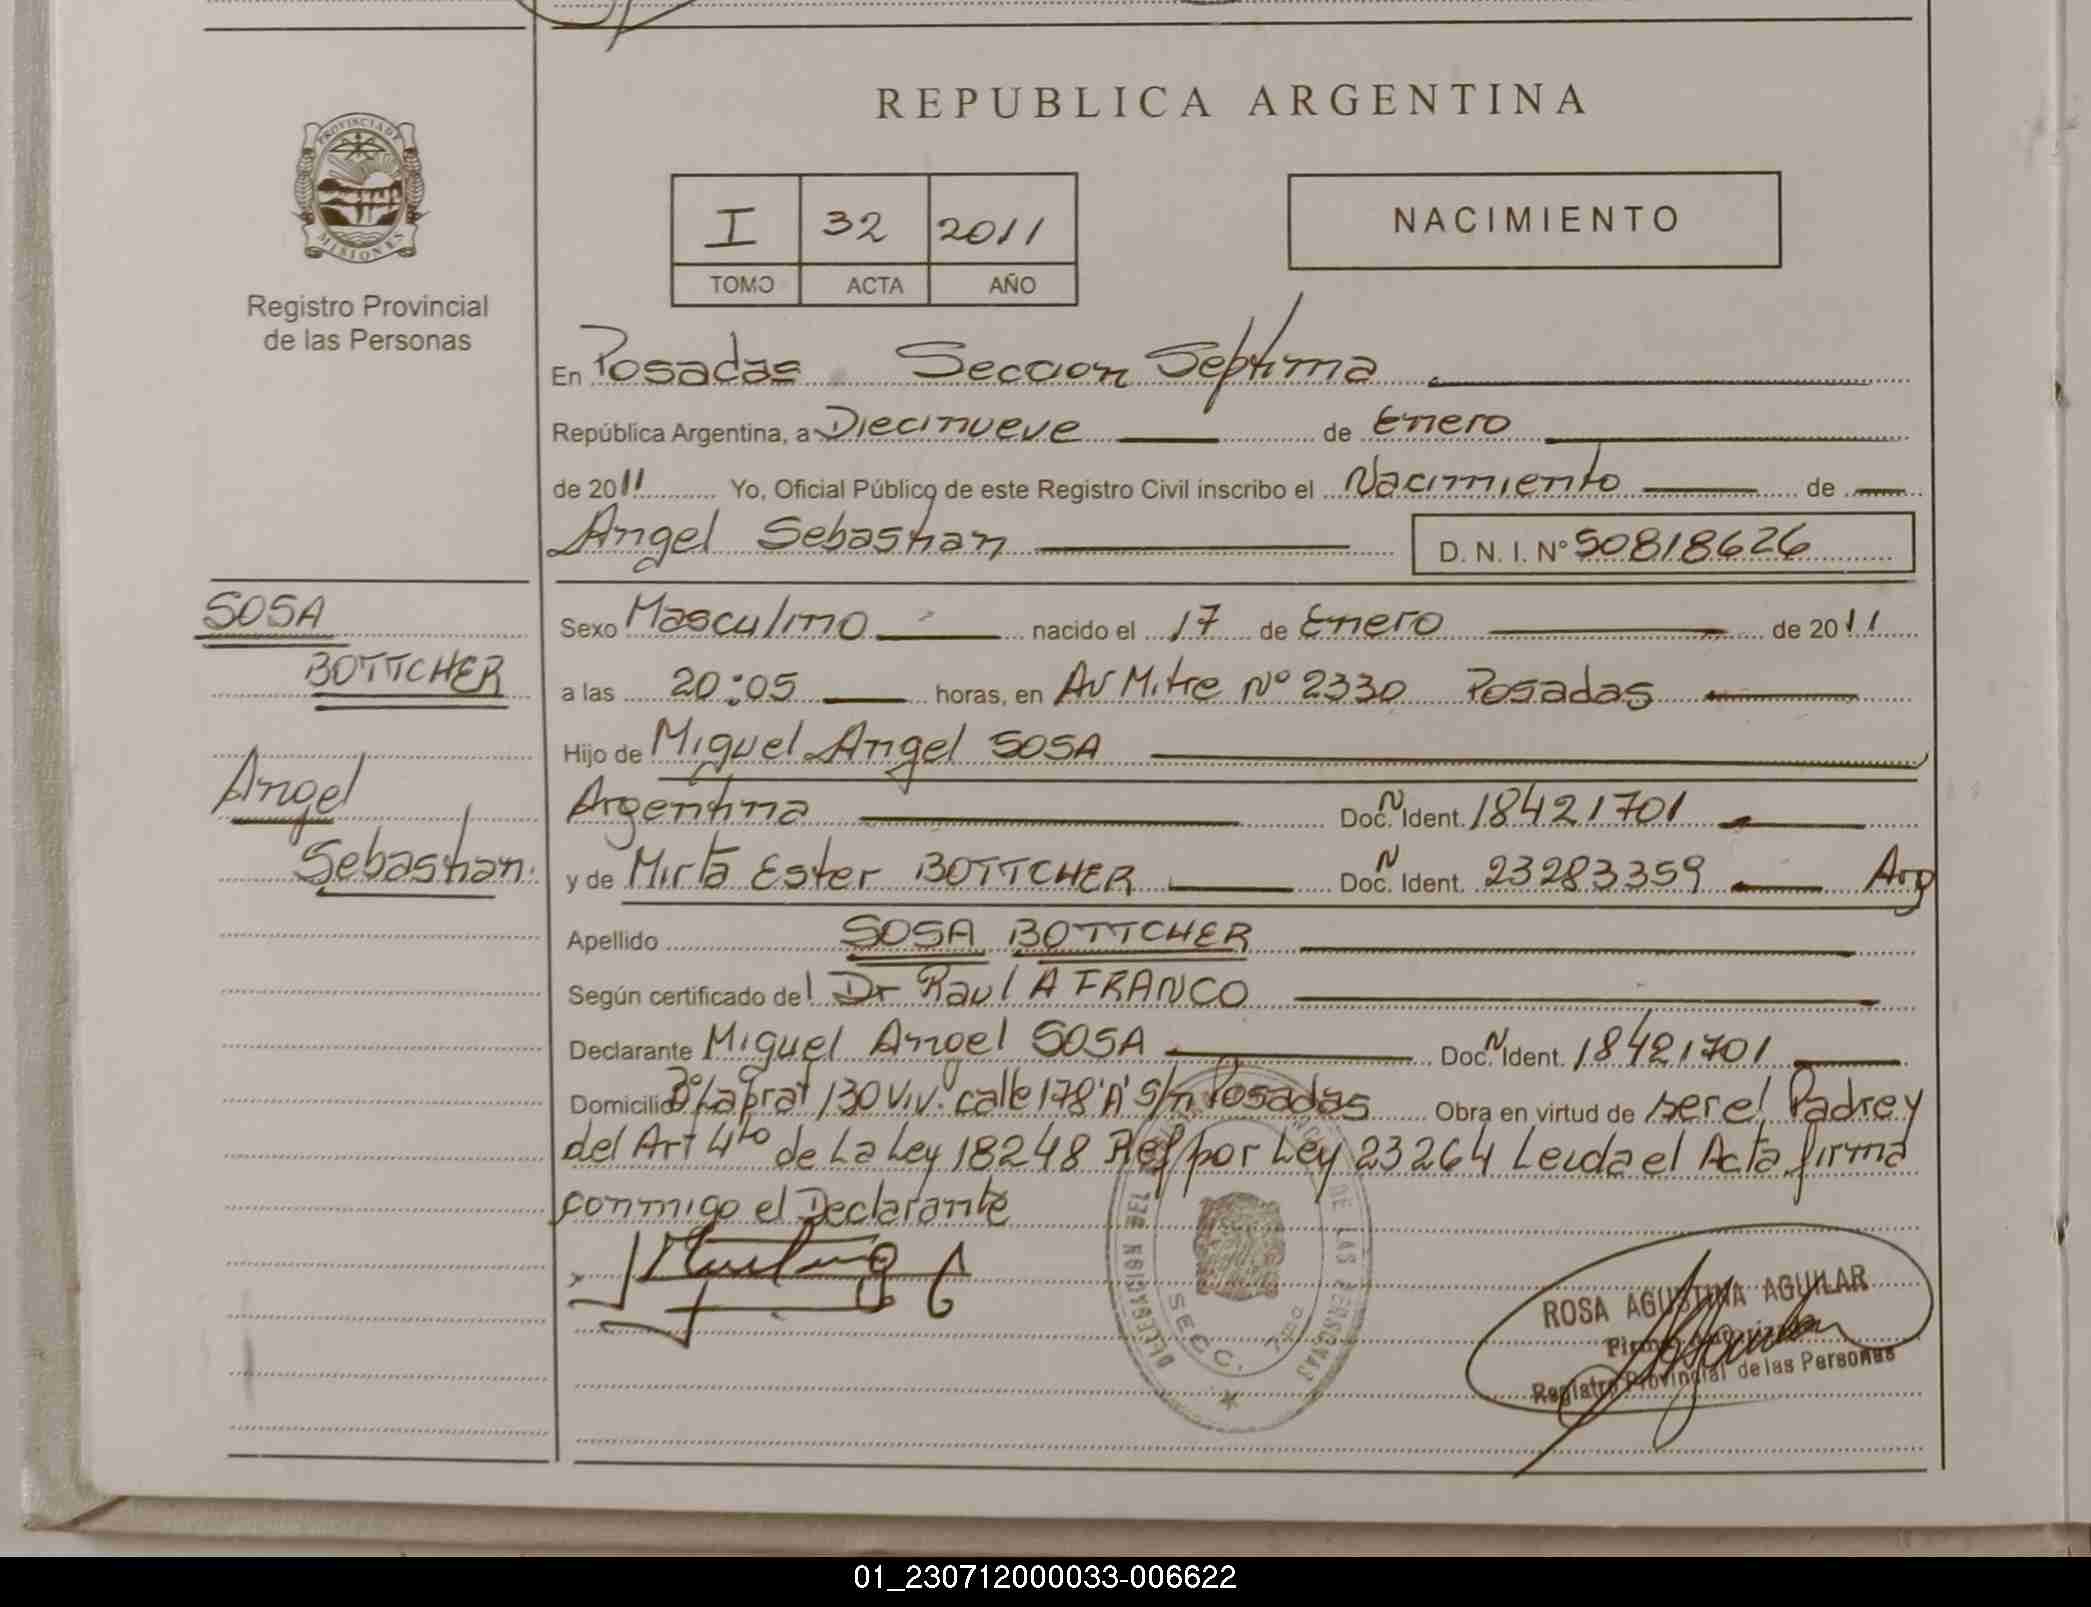 REPUBLICA ARGENTINA
PROVINCIA DE
MISIONES
Registro Provincial
de las Personas
I 32 2011
TOMO ACTA AÑO
NACIMIENTO
En Posadas Seccion Septima
República Argentina, a Diecinueve de Enero
de 2011 Yo, Oficial Público de este Registro Civil inscribo el Nacimiento de
Angel Sebastian D. N. I. Nº 50818626
SOSA
BOTTCHER
Angel
Sebastian
Sexo Masculino nacido el 17 de Enero de 2011
a las 20:05 horas, en Av Mitre Nº 2330 Posadas
Hijo de Miguel Angel SOSA
Argentina Doc. N Ident. 18421701
y de Mirta Ester BOTTCHER Doc. N Ident. 23283359 Arg
Apellido SOSA BOTTCHER
Según certificado del Dr Raul A FRANCO
Declarante Miguel Angel SOSA Doc. N Ident. 18421701
Domicilio Bº Laprat 130 Viv. calle 178 "A" S/n Posadas Obra en virtud de ser el Padre y
del Art 4to de La Ley 18248 Ref por Ley 23264 Leida el Acta firma
conmigo el Declarante
DELEGACION
DE LAS PERSONAS
SECC. 7
ROSA AGUSTINA AGUILAR
Registro Provincial de las Personas
01_230712000033-006622